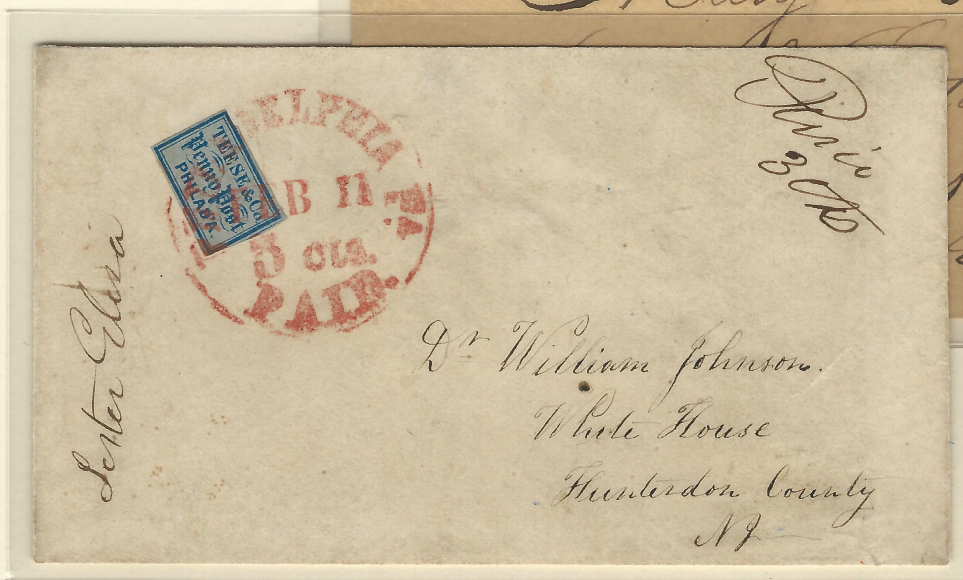 TEESE & Co
Penny Post
PHILAD'A.
DELPHIA PA
EB 11
3 cts.
PAID.
3
Dr William Johnson.
White House
Hunterdon County
NJ